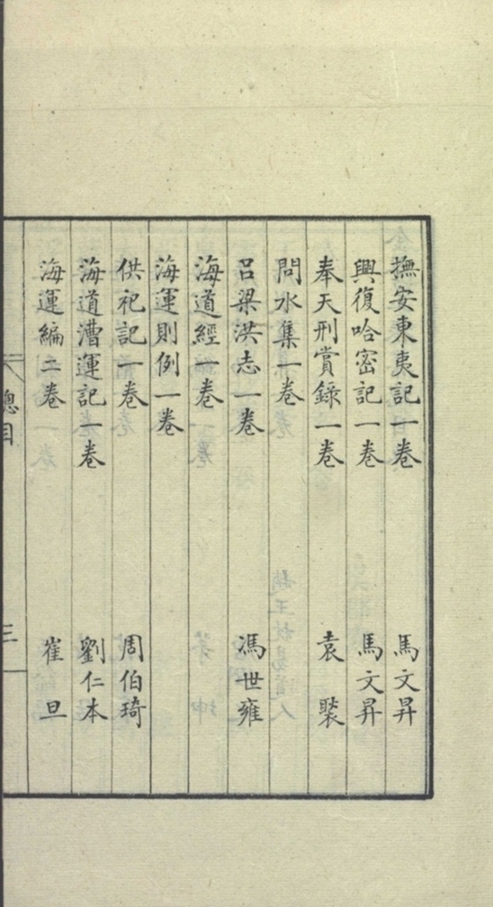 撫安東夷記一卷　馬文昇
興復哈密記一卷　馬文昇
奉天刑賞錄一卷　袁褧
問水集一卷
呂梁洪志一卷　馮世雍
海道經一卷
海運則例一卷
供祀記一卷　周伯琦
海道漕運記一卷　劉仁本
海運編二卷　崔旦
總目
三